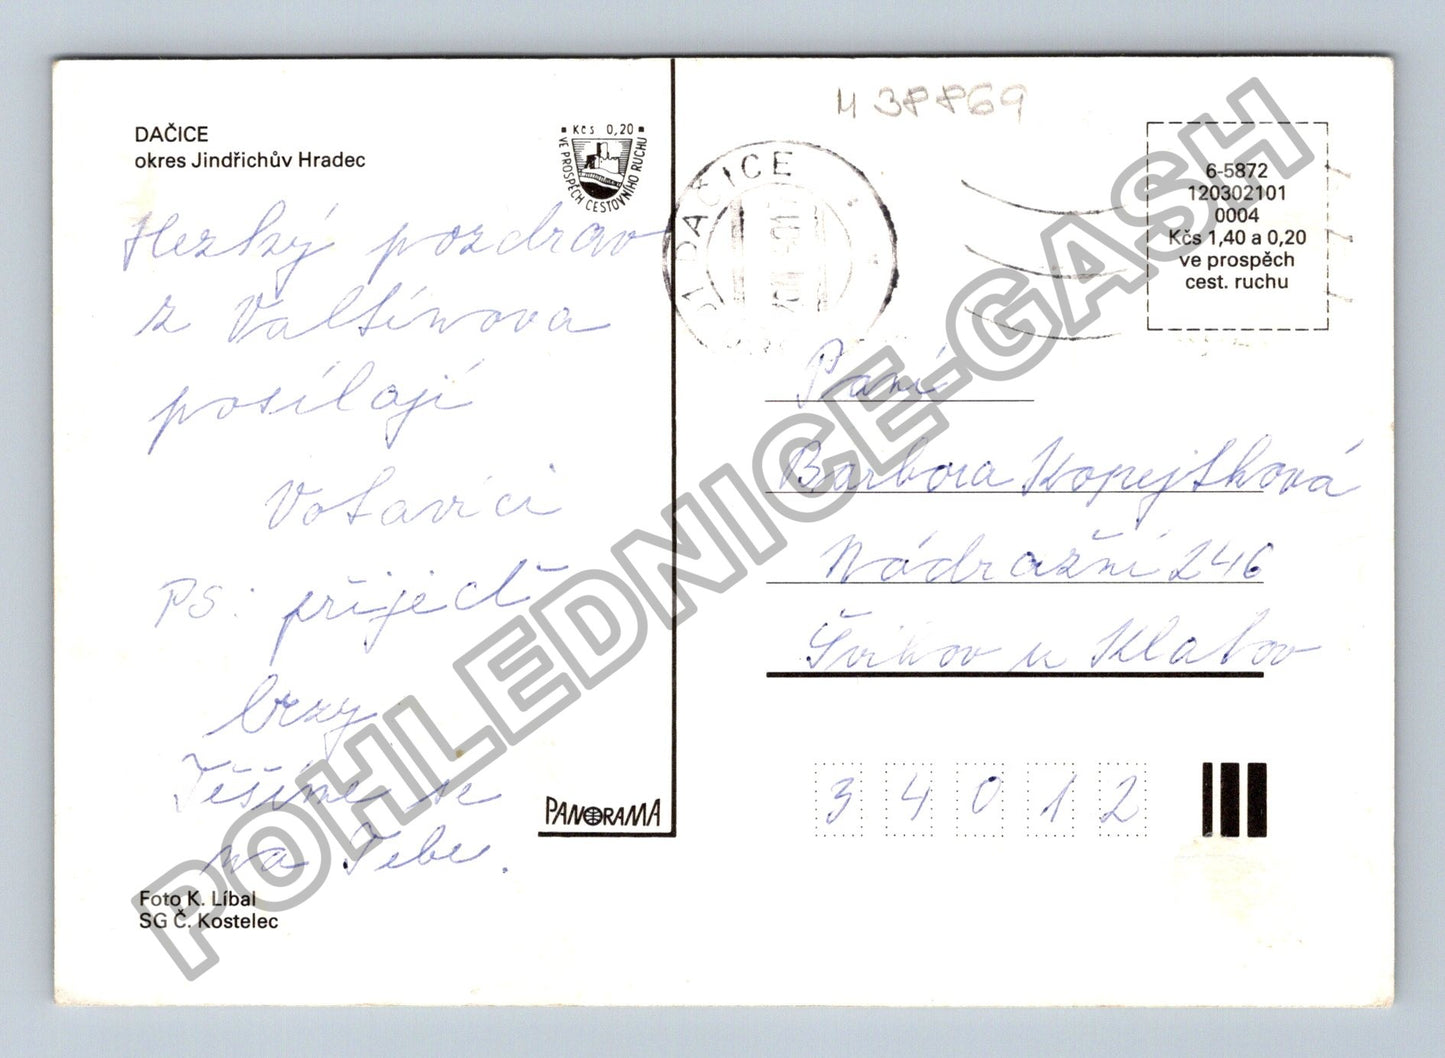 DAČICE
okres Jindřichův Hradec
Kčs 0,20
VE PROSPĚCH CESTOVNÍHO RUCHU
Hezký pozdrav
z Valtínova
posílají
Votavíci
PS: přijeď
brzy
Těšíme se
na Tebe.
Foto K. Líbal
SG Č. Kostelec
PANORAMA
M 38869
DAČICE
6-5872
120302101
0004
Kčs 1,40 a 0,20
ve prospěch
cest. ruchu
Paní
Barbora Kopejtková
Nádražní 246
Švihov u Klatov
34012
POHLEDNICE-GASH